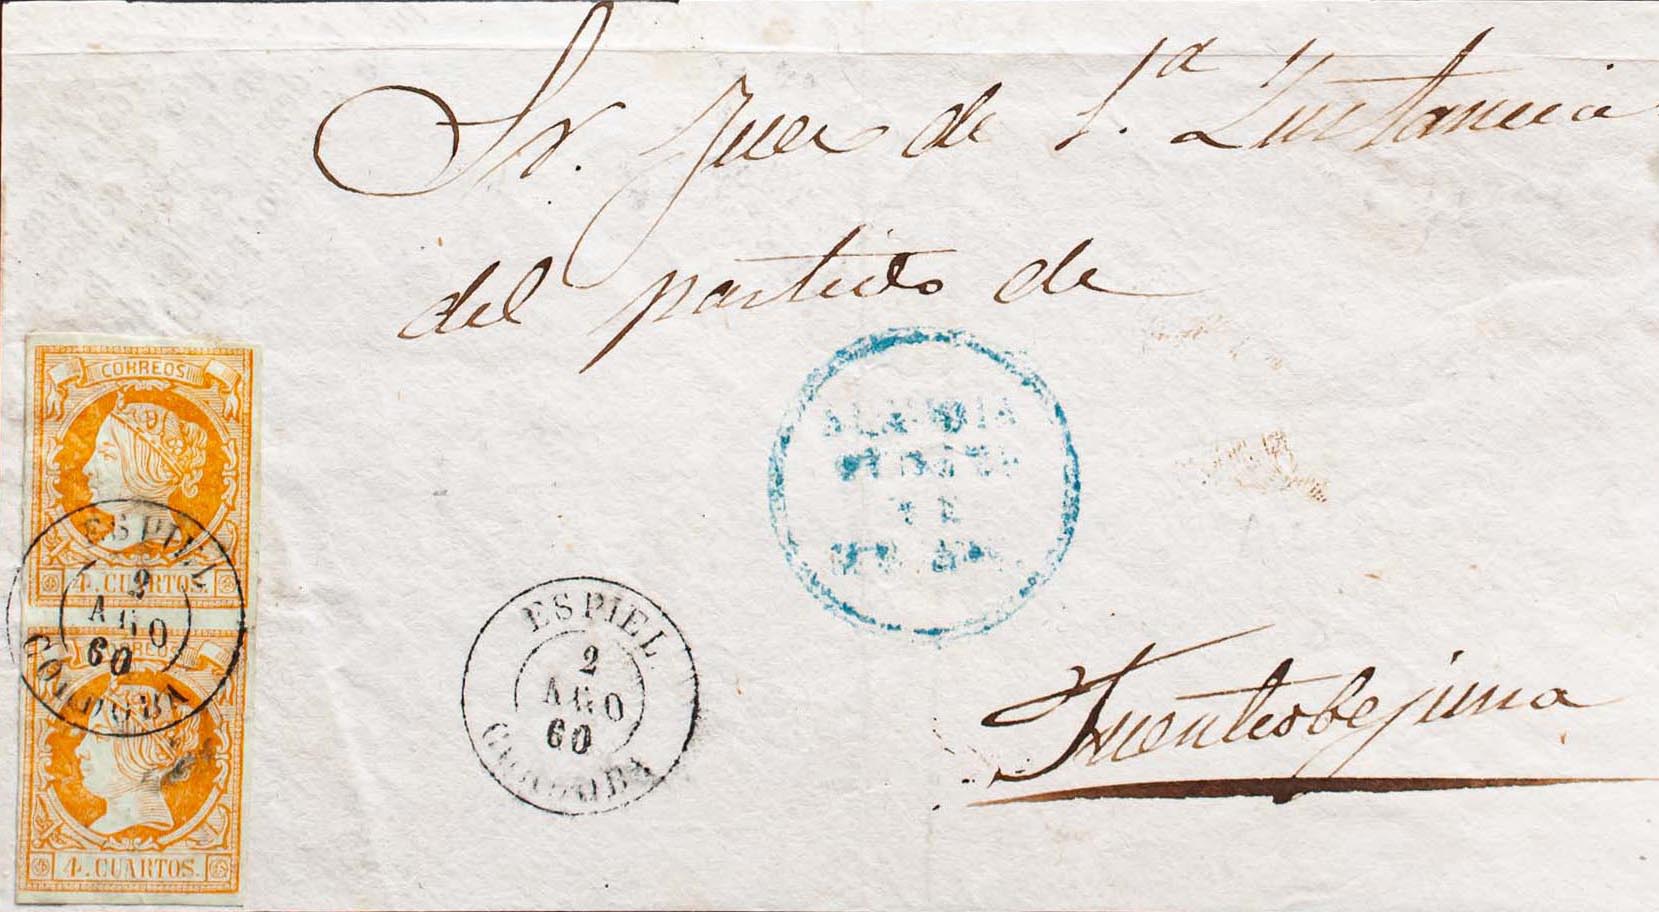 Sr. Juez de 1.ª Instancia
del partido de
Fuenteobejuna
CORREOS
4. CUARTOS.
CORREOS
4. CUARTOS.
ESPIEL
2
AGO
60
CORDOBA
ESPIEL.
2
AGO
60
CORDOBA